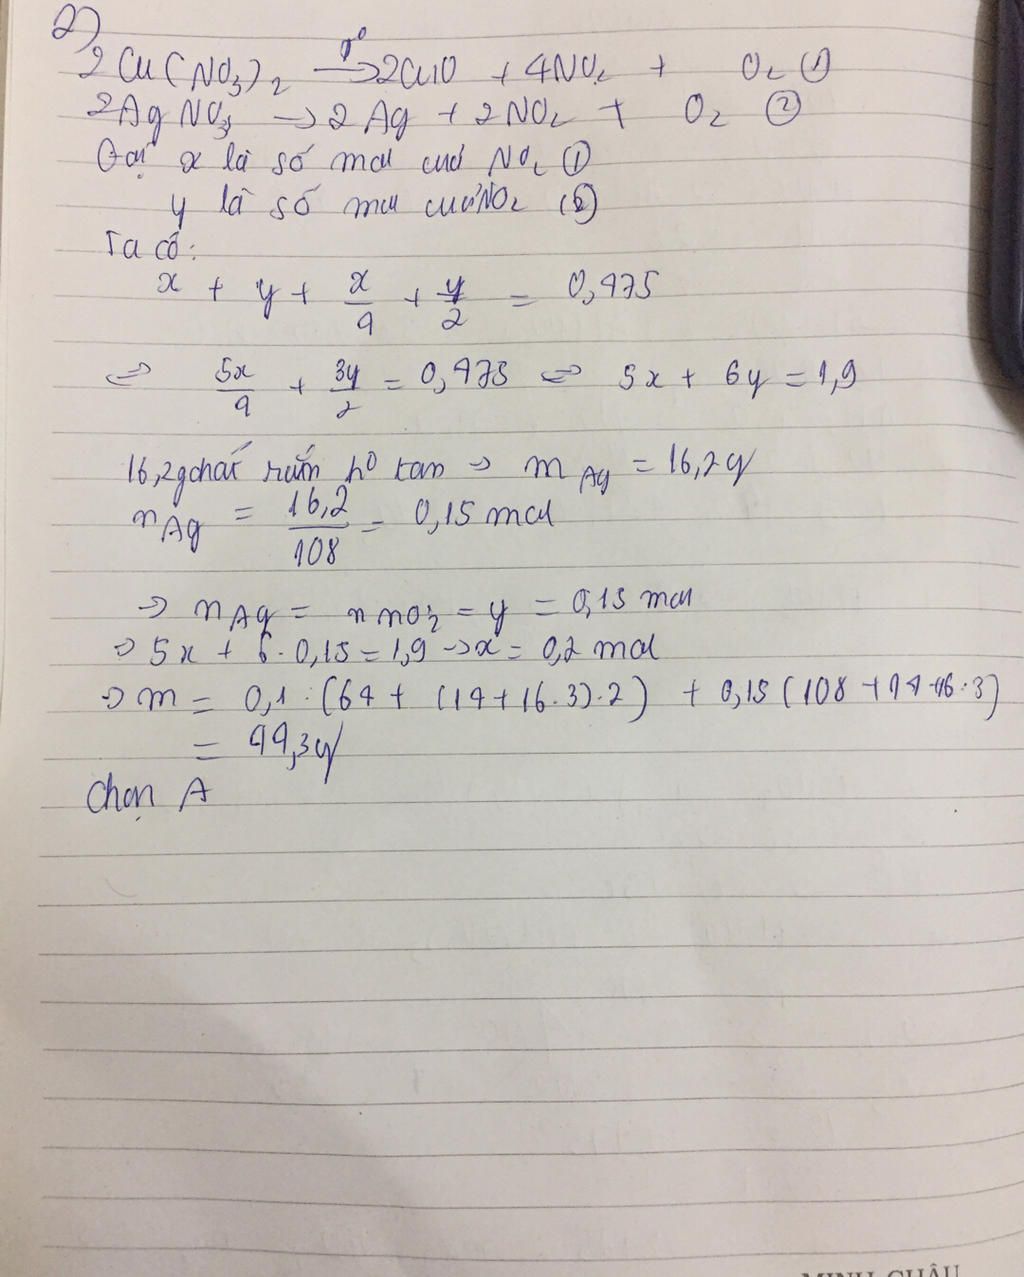 2)
2Cu(NO3)2 —t°→ 2CuO + 4NO2 + O2 ①
2AgNO3 → 2Ag + 2NO2 + O2 ②
Gọi x là số mol của NO2 ①
y là số mol của NO2 (2)
Ta có:
x + y + x/4 + y/2 = 0,475
⇔ 5x/4 + 3y/2 = 0,475 ⇔ 5x + 6y = 1,9
16,2g chất rắn ko tan ⇒ m Ag = 16,2g
nAg = 16,2/108 = 0,15 mol
⇒ nAg = nNO2 = y = 0,15 mol
⇒ 5x + 6.0,15 = 1,9 → x = 0,2 mol
⇒ m = 0,1.(64 + (14+16.3).2) + 0,15(108+14+16.3)
= 44,3g
Chọn A
MINH CHÂU